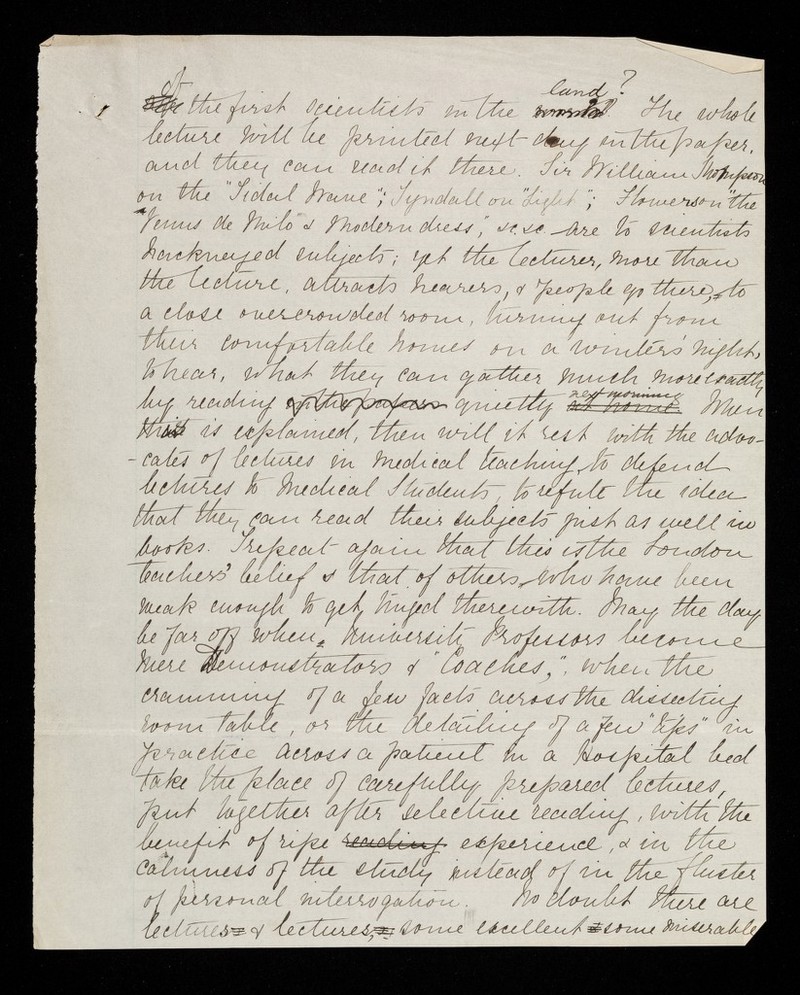 of the first scientists in the land? The whole
lecture will be printed next day in the paper,
and they can read it there. Sir William Thompson
on the "Tidal Wave"; Tyndall on "Light"; Flowers on "the
Venus de Milo & Modern dress," &c &c - are to scientists
hackneyed subjects; yet the lecturer, more than
the lecture, attracts hearers, & people go there, to
a close overcrowded room, turning out from
their comfortable homes on a winters' night,
to hear, what they can gather much more exactly
by reading quietly next morning. When
this is explained, then will it rest with the advo-
-cates of lectures in medical teaching, to defend
lectures to Medical Students, to refute the idea
that they can read their subjects just as well in
books. I repeat again that this is the London
teachers' belief & that of others, who have been
weak enough to get tinged therewith. May the day
be far off when University Professors become
mere Demonstrators & "Coaches,". when the
cramming of a few facts across the dissecting
room table, or the detailing of a few "tips" in
practice across a patient in a Hospital bed
take the place of carefully prepared lectures,
put together after selective reading, with the
benefit of ripe reading experience, & in the
calmness of the study instead of in the fluster
of personal interrogation. No doubt there are
lectures & lectures, some excellent some miserable